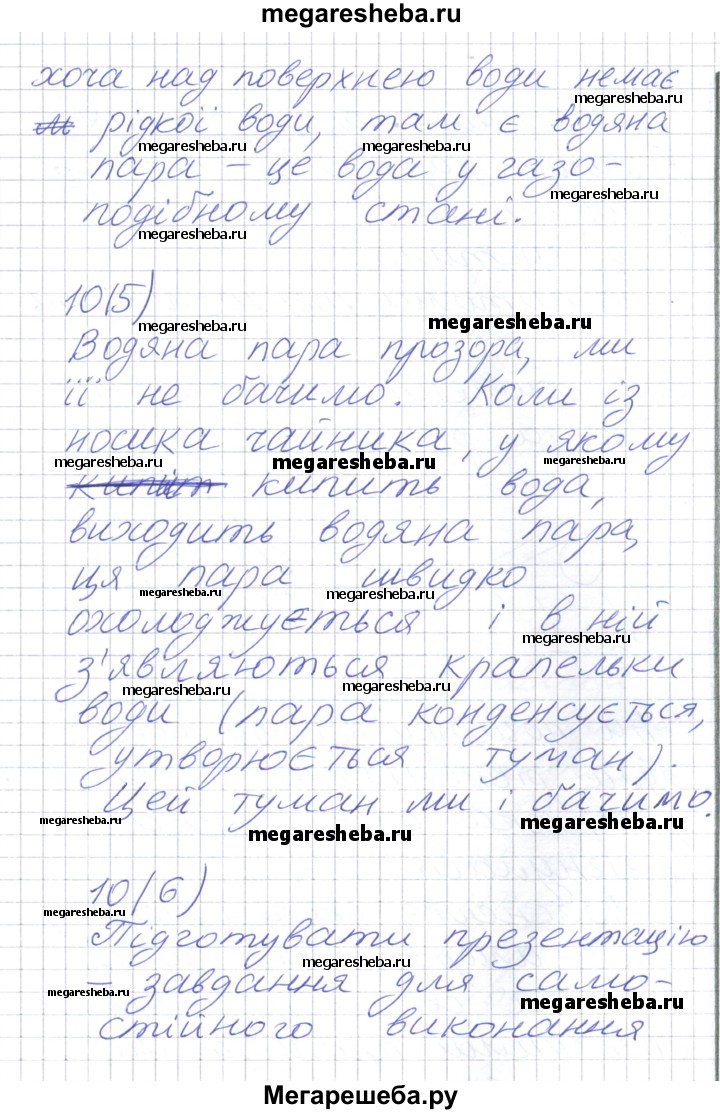 megaresheba.ru
хоча над поверхнею води немає
megaresheba.ru
рідкої води, там є водяна
megaresheba.ru
пара – це вода у газо-
megaresheba.ru
подібному стані.
megaresheba.ru
10(5)
megaresheba.ru
megaresheba.ru
Водяна пара прозора, ми
її не бачимо. Коли із
носика чайника, у якому
megaresheba.ru
megaresheba.ru
кипить вода,
виходить водяна пара,
ця пара швидко
megaresheba.ru
megaresheba.ru
охолоджується і в ній
megaresheba.ru
з'являються крапельки
megaresheba.ru
megaresheba.ru
води (пара конденсується,
утворюється туман).
Цей туман ми і бачимо.
megaresheba.ru
megaresheba.ru
megaresheba.ru
10(6)
megaresheba.ru
Підготувати презентацію
megaresheba.ru
– завдання для само-
megaresheba.ru
megaresheba.ru
стійного виконання
megaresheba.ru
Мегарешеба.ру